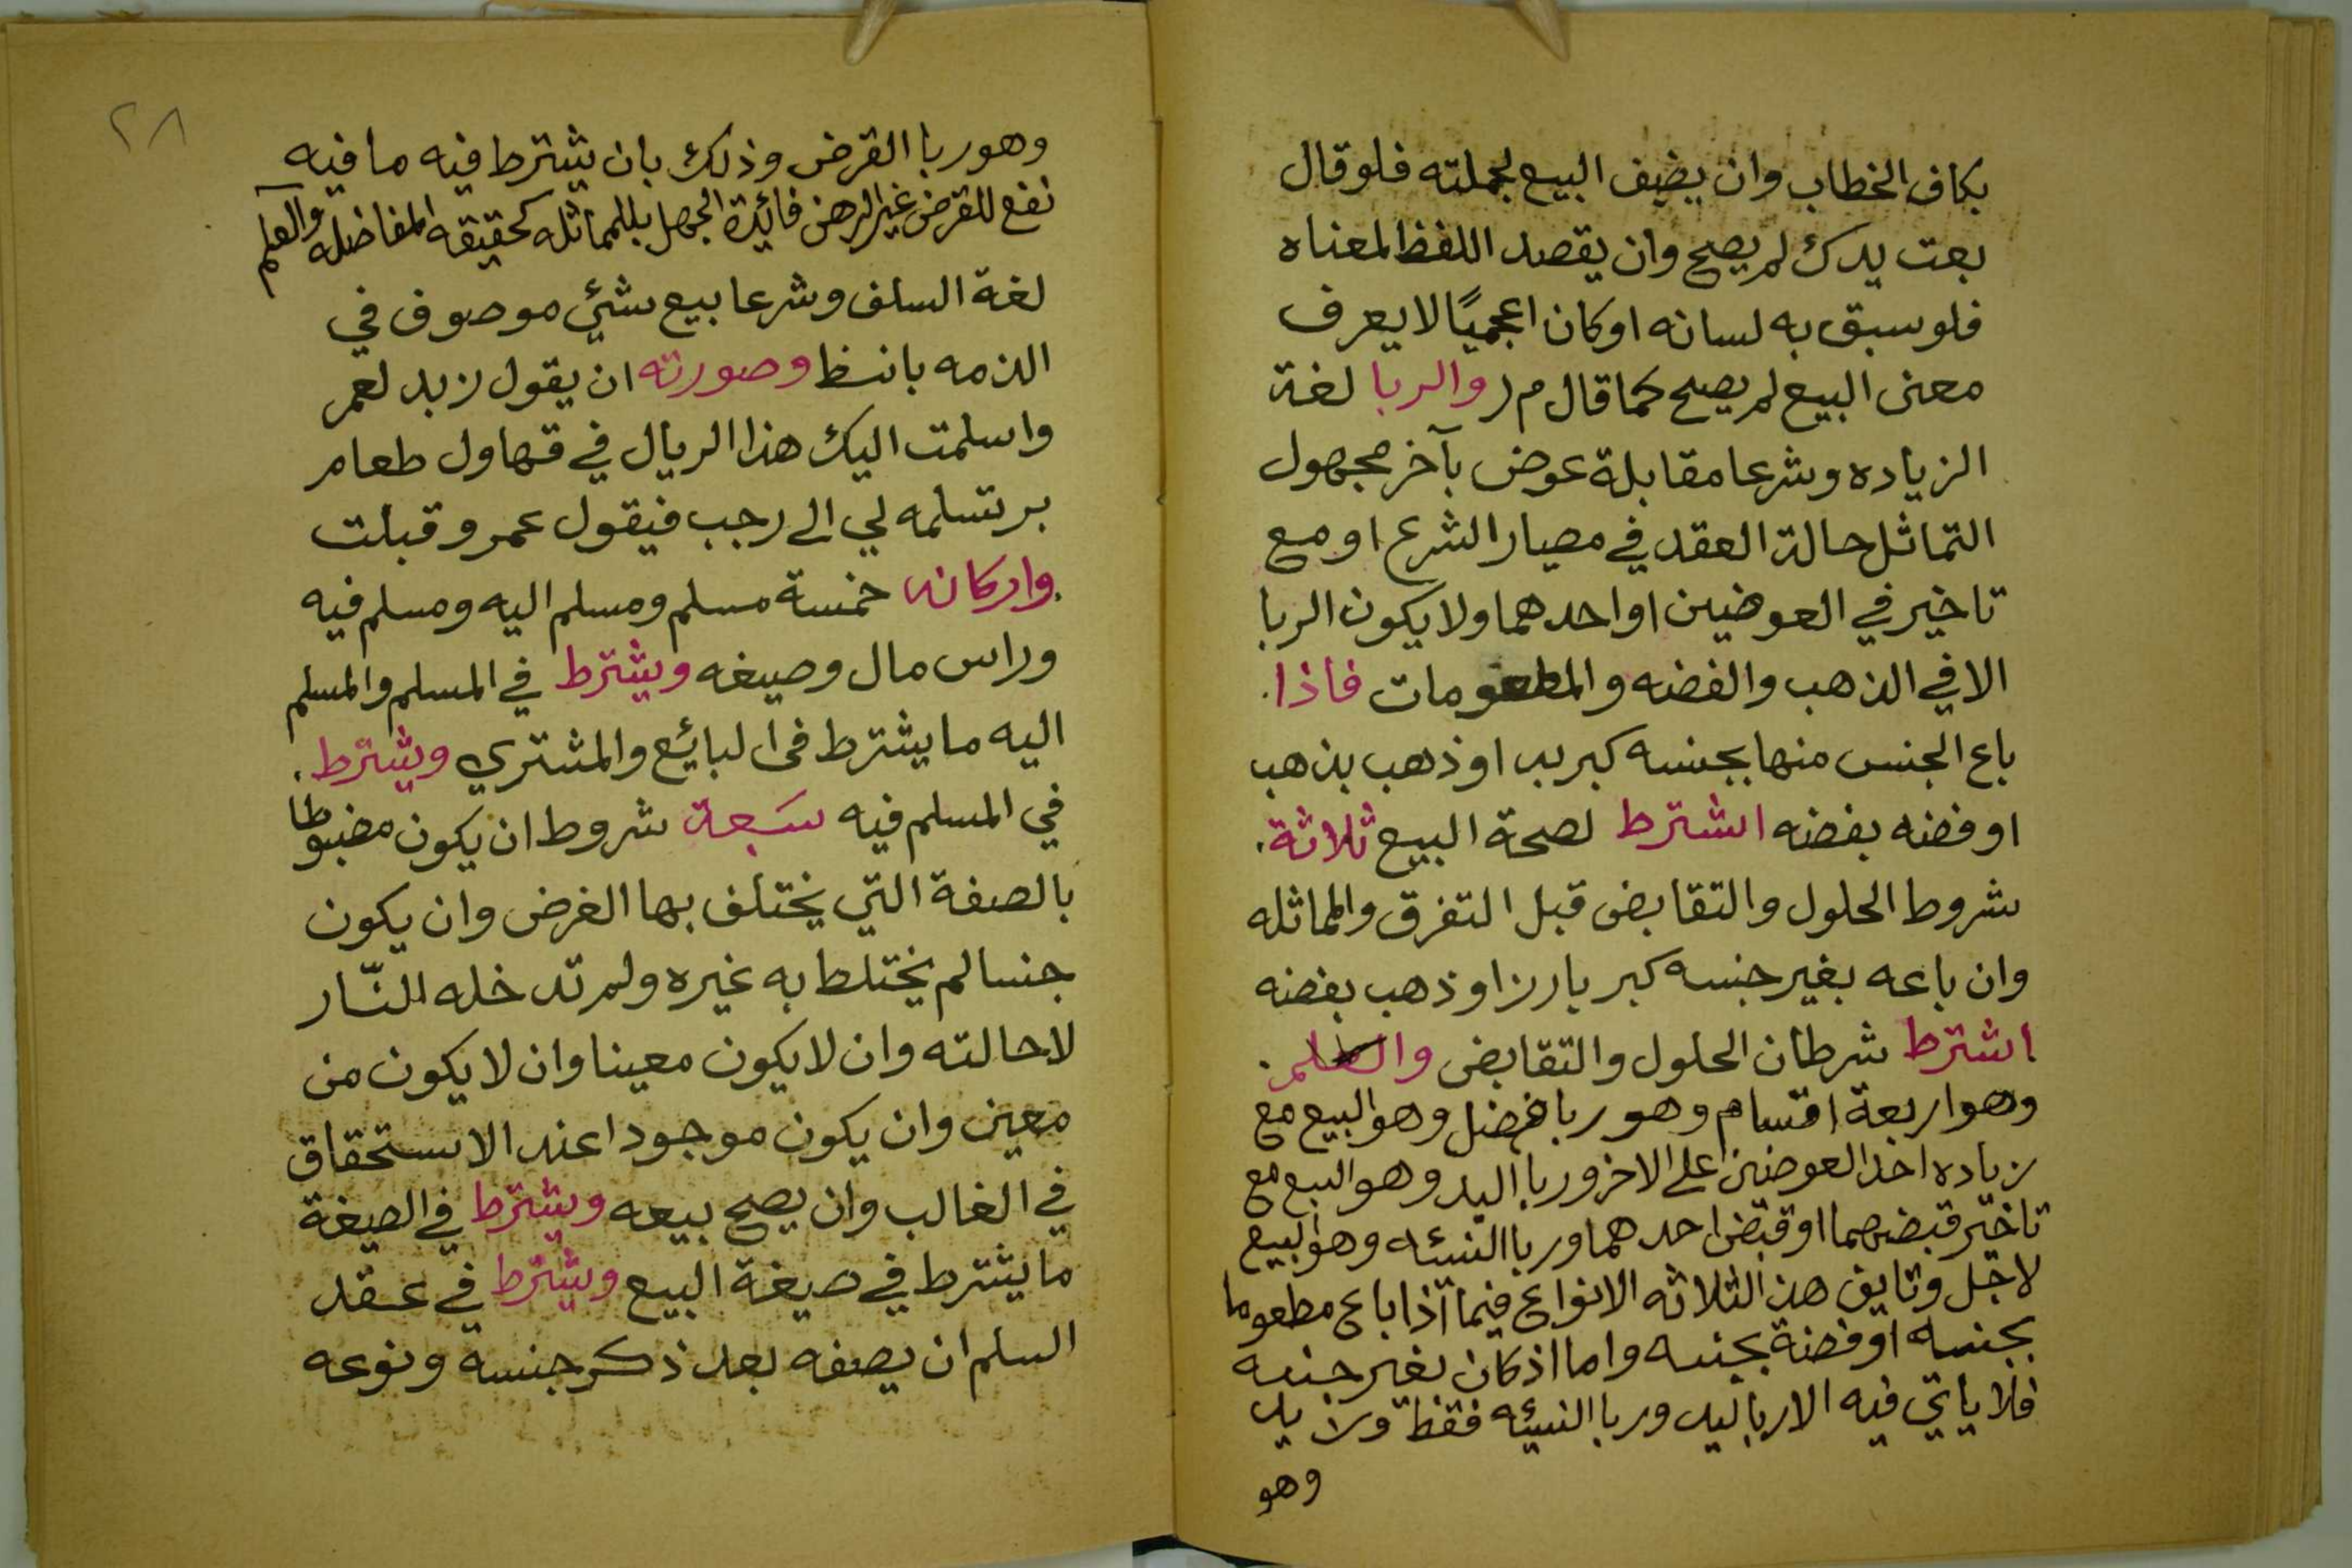 بكاف الخطاب وان يضيف البيع لجملته فلو قال
بعت يدك لم يصح وان يقصد اللفظ لمعناه
فلو سبق به لسانه او كان اعجميًا لا يعرف
معنى البيع لم يصح كما قال م ر والربا لغة
الزياده وشرعا مقابلة عوض بآخر مجهول
التماثل حالة العقد في معيار الشرع او مع
تاخير في العوضين او احدهما ولا يكون الربا
الا في الذهب والفضه والمطعومات فاذا
باع الجنس منها بجنسه كبر ببر او ذهب بذهب
او فضه بفضه اشترط لصحة البيع ثلاثة
شروط الحلول والتقابض قبل التفرق والماثله
وان باعه بغير جنسه كبر بارز او ذهب بفضه
اشترط شرطان الحلول والتقابض
وهو اربعة اقسام وهو ربا فضل وهو البيع مع
زياده احد العوضين على الاخر وربا اليد وهو البيع مع
تاخير قبضهما او قبض احدهما وربا النسئه وهو البيع
لاجل وتايق هذ الثلاثه الانواع فيما اذا باع مطعوما
بجنسه او فضة بجنسه واما اذ كان بغير جنسه
فلا ياتي فيه الا ربا ليد وربا النسيئه فقط وزيد
وهو
٢٨
وهو ربا القرض وذلك بان يشترط فيه ما فيه
نفع للمقرض غير الرهن فائدة الجهل بللماثله كحقيقه المفاضله والعلم
لغة السلف وشرعا بيع شئي موصوف في
الذمه بلفظ وصورته ان يقول زيد لعمر
واسلمت اليك هذا الريال في قهاول طعام
بر تسلمه لي الى رجب فيقول عمرو قبلت
واركانه خمسة مسلم ومسلم اليه ومسلم فيه
وراس مال وصيغه ويشترط في المسلم والمسلم
اليه ما يشترط فى البائع والمشتري ويشترط
في المسلم فيه سبعة شروط ان يكون مضبوطا
بالصفة التي يختلف بها الغرض وان يكون
جنسا لم يختلط به غيره ولم تدخله النّار
لاحالته وان لا يكون معينا وان لا يكون من
معين وان يكون موجودا عند الاستحقاق
في الغالب وان يصح بيعه ويشترط في الصيغة
ما يشترط في صيغة البيع ويشترط في عقد
السلم ان يصفه بعد ذكر جنسه ونوعه